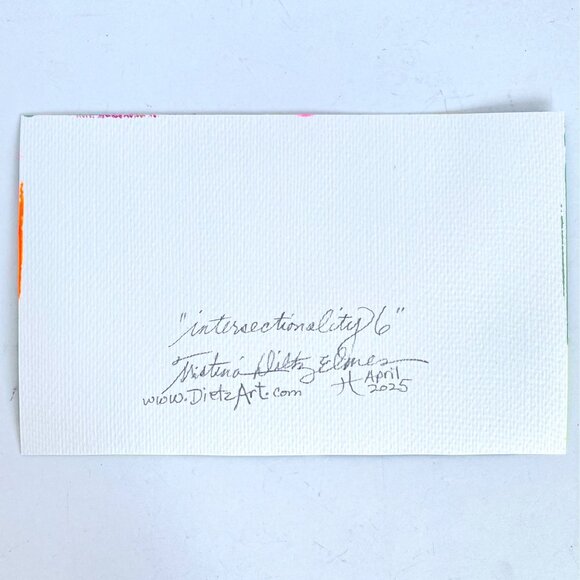 "intersectionality 6"
Tristina Dietz Elmes
www.DietzArt.com
April
2025